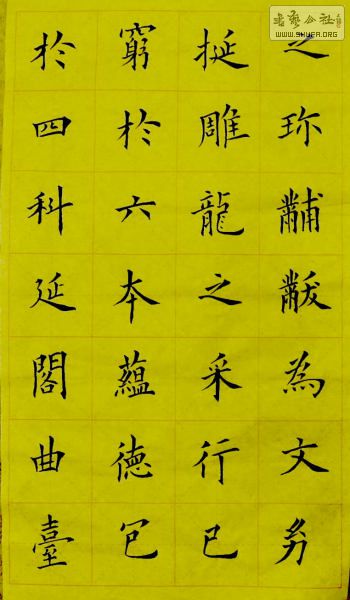 之珎黼黻為文
挺雕龍之采行已
窮於六本蘊德包
於四科延閣曲臺
WWW.SHUFA.ORG